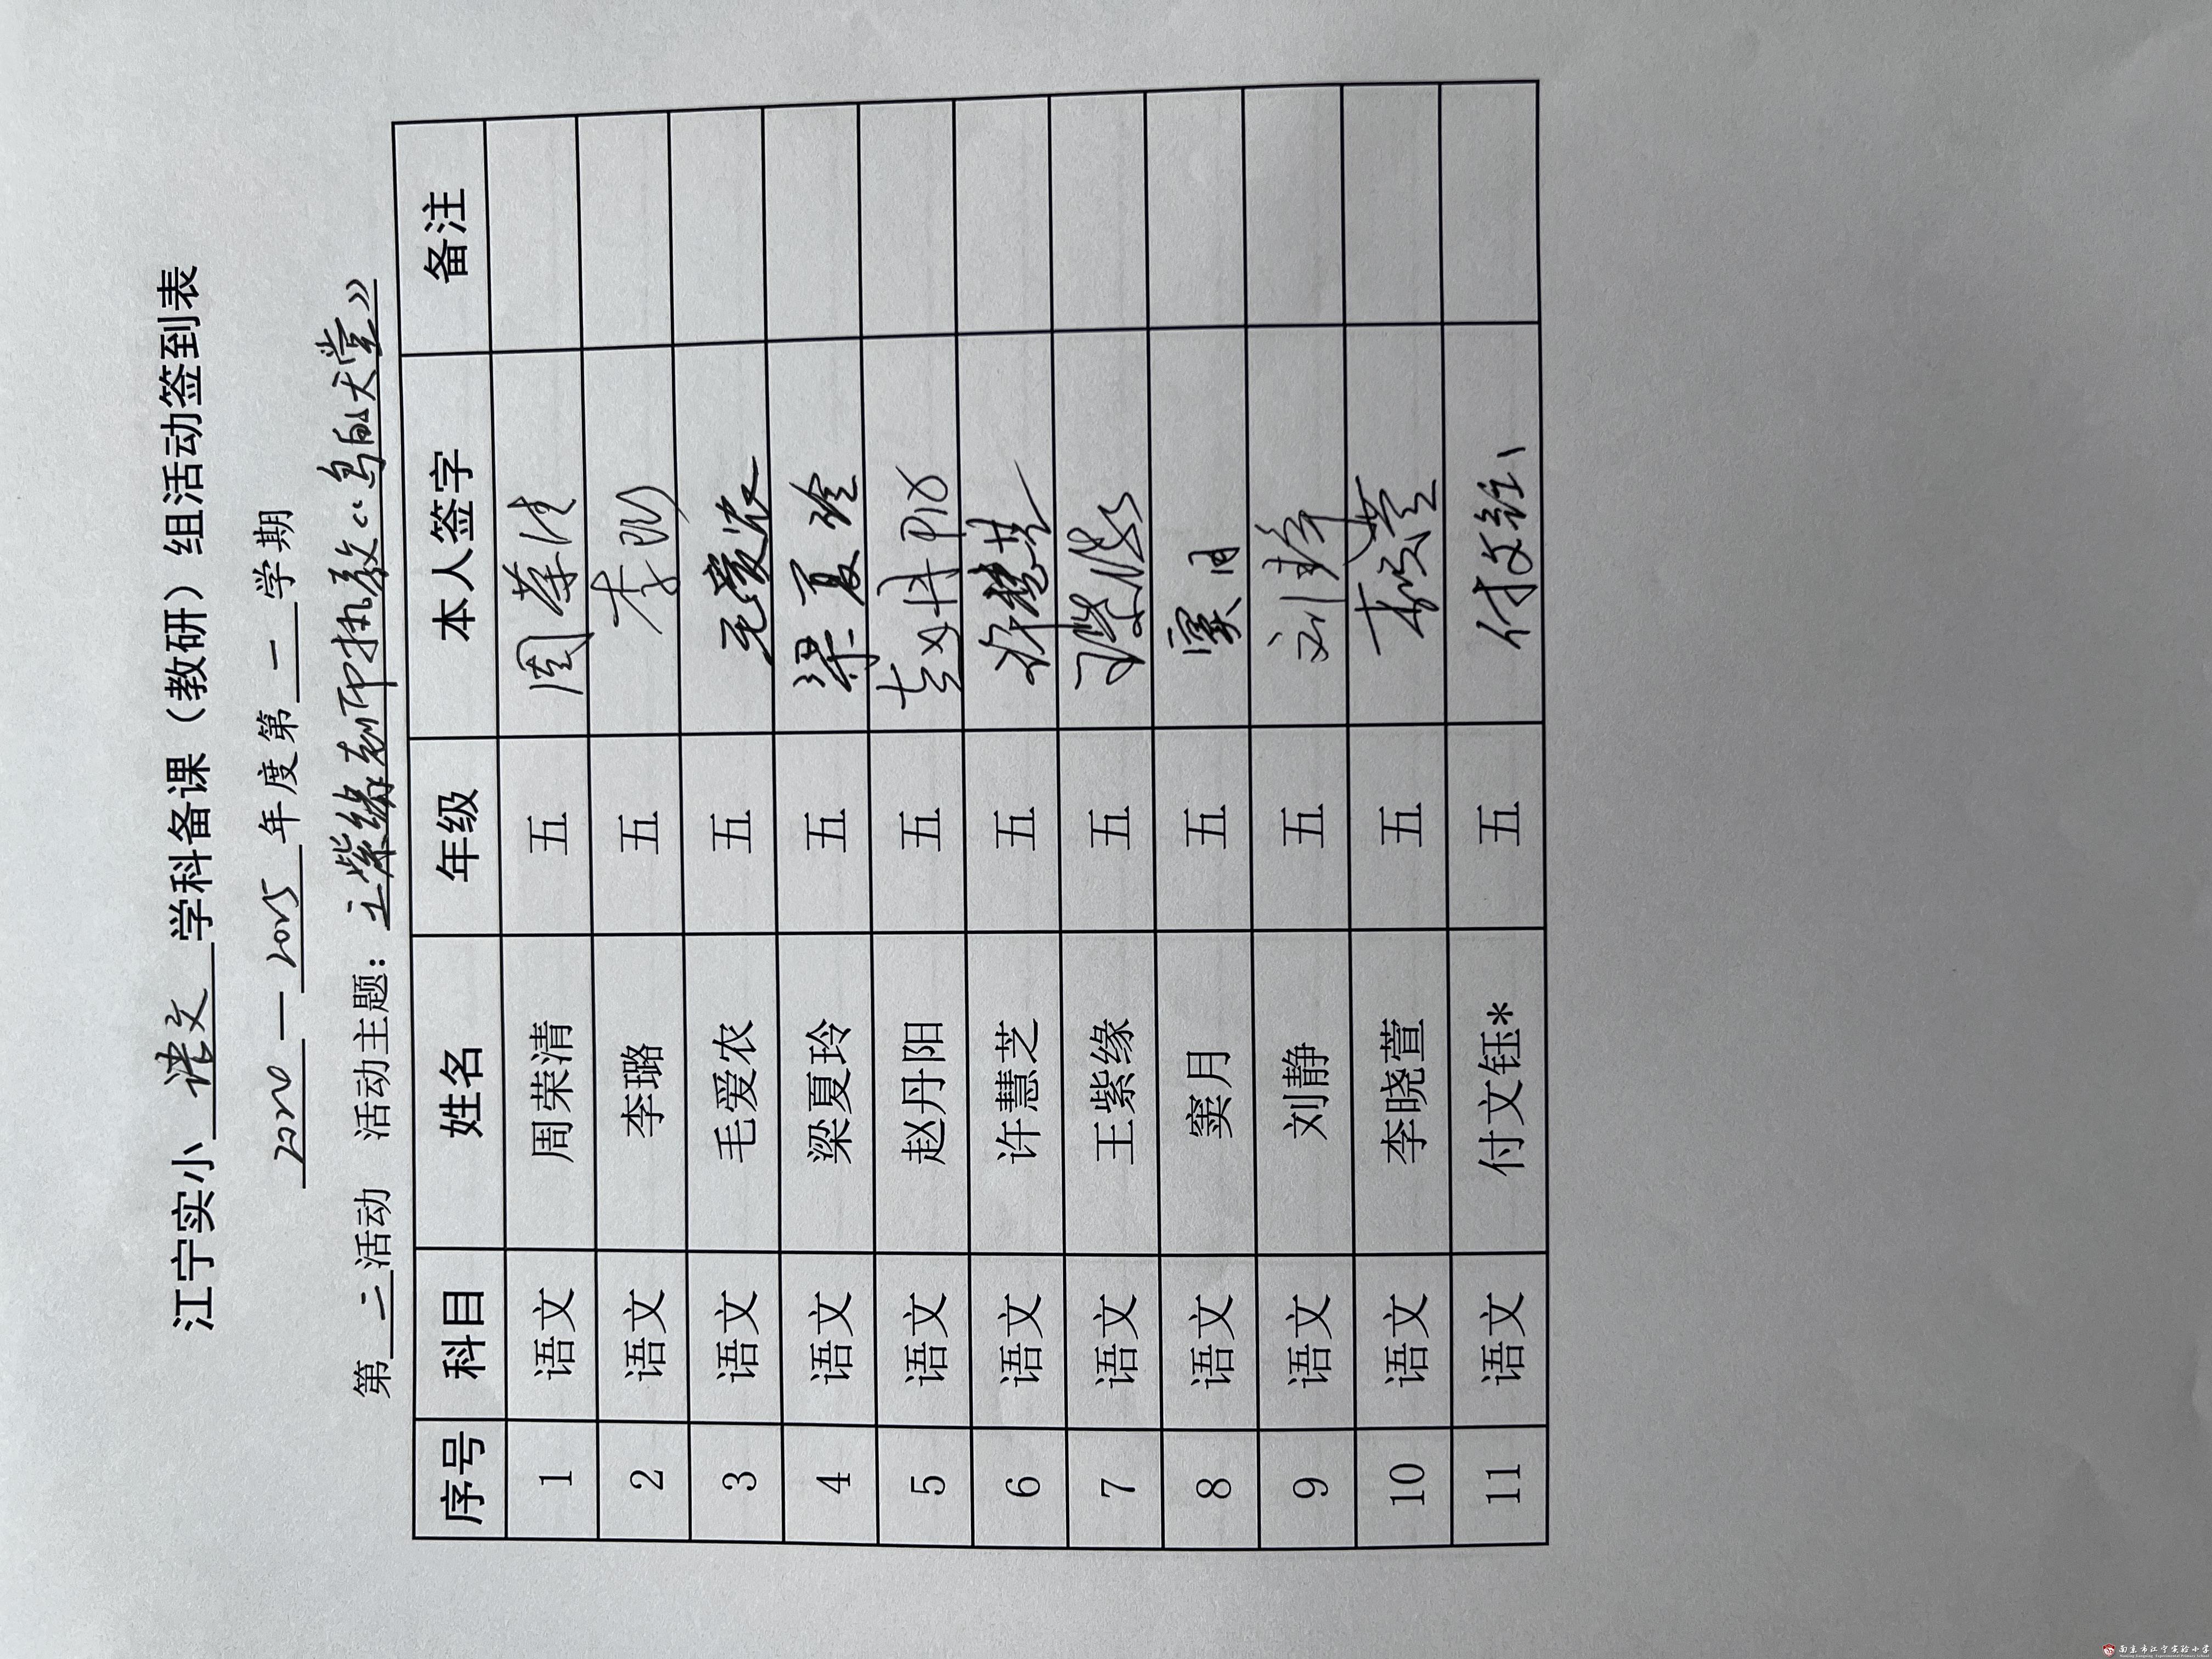 江宁实小 语文 学科备课（教研）组活动签到表
2024—2025 年度第 一 学期
第 二 活动 活动主题：王紫缘老师执教《鸟的天堂》
序号 科目 姓名 年级 本人签字 备注
1 语文 周荣清 五 周荣清
2 语文 李璐 五 李璐
3 语文 毛爱农 五 毛爱农
4 语文 梁夏玲 五 梁夏玲
5 语文 赵丹阳 五 赵丹阳
6 语文 许慧芝 五 许慧芝
7 语文 王紫缘 五 王紫缘
8 语文 窦月 五 窦月
9 语文 刘静 五 刘静
10 语文 李晓萱 五 李晓萱
11 语文 付文钰* 五 付文钰
南京市江宁实验小学